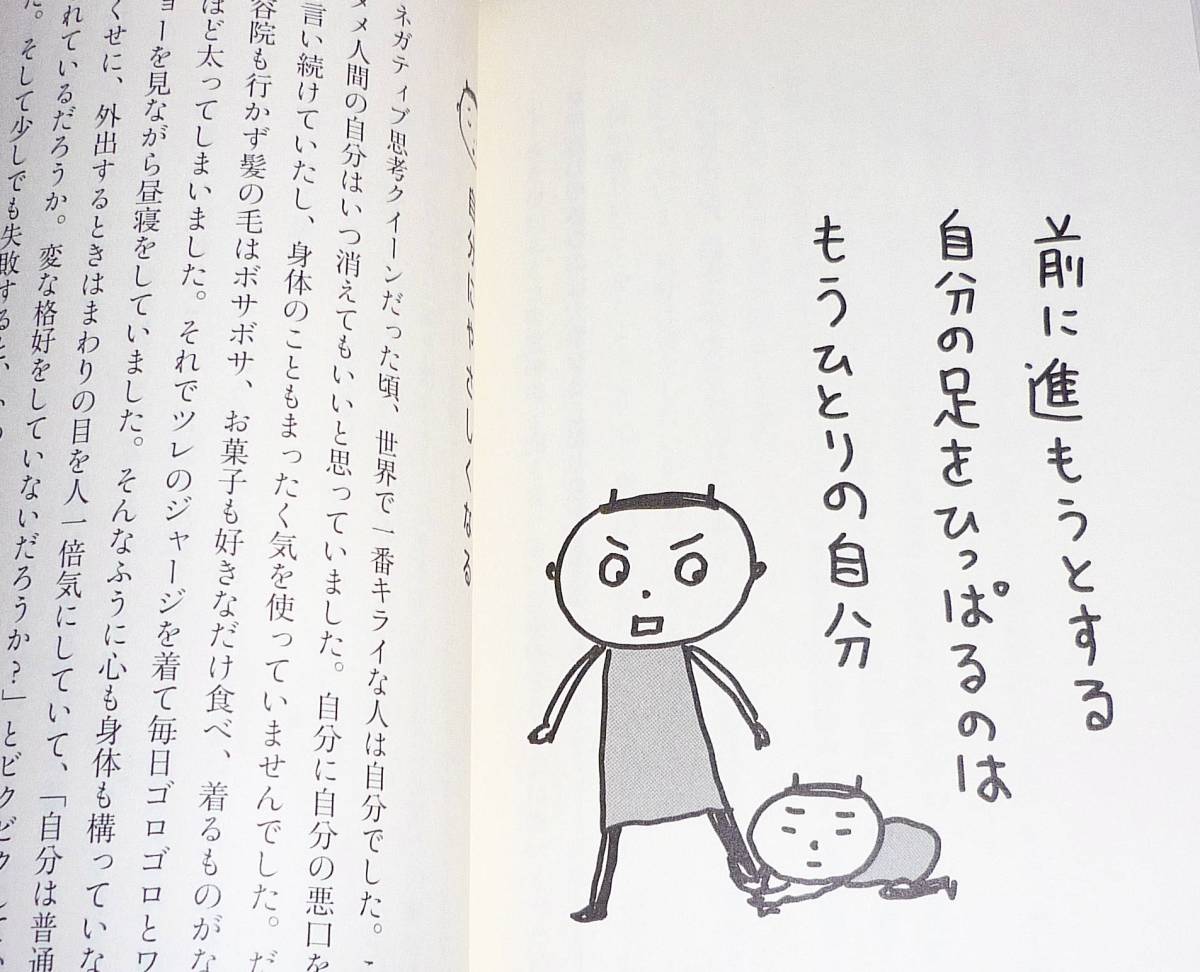 前に進もうとする
自分の足をひっぱるのは
もうひとりの自分
自分にやさしくなる
ネガティブ思考クイーンだった頃、世界で一番キライな人は自分でした。
メ人間の自分はいつ消えてもいいと思っていました。自分に自分の悪口を
言い続けていたし、身体のこともまったく気を使っていませんでした。だ
容院も行かず髪の毛はボサボサ、お菓子も好きなだけ食べ、着るものがな
ほど太ってしまいました。それでツレのジャージを着て毎日ゴロゴロとワ
ョーを見ながら昼寝をしていました。そんなふうに心も身体も構っていな
くせに、外出するときはまわりの目を人一倍気にしていて、「自分は普通
れているだろうか。変な格好をしていないだろうか?」とビクビクしてい
た。そして少しでも失敗すると、